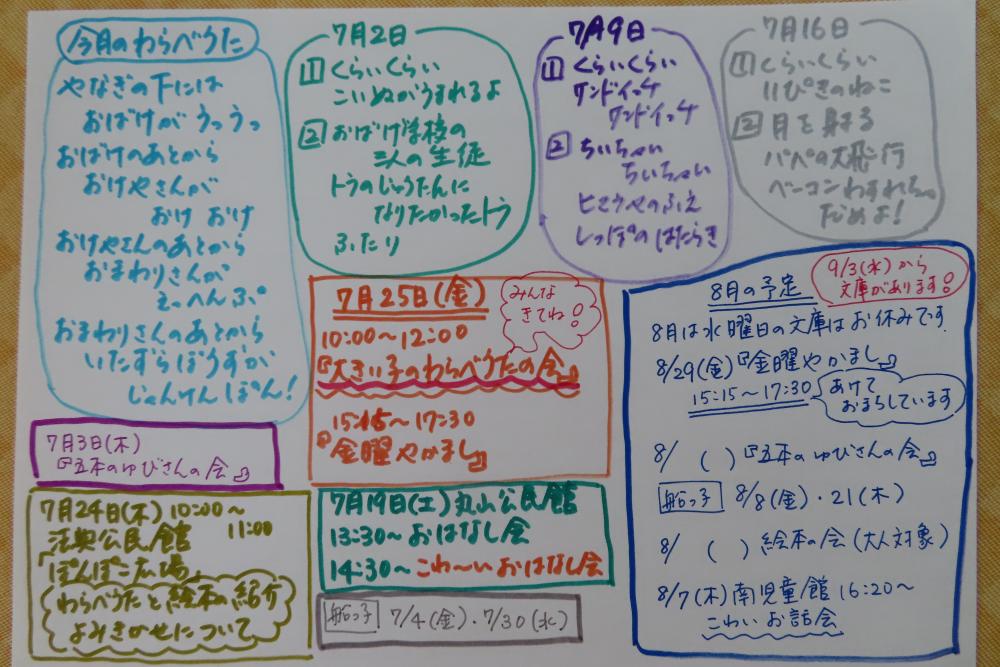 今月のわらべうた
やなぎの下には
おばけがうっうっ
おばけのあとから
おけやさんが
おけ おけ
おけやさんのあとから
おまわりさんが
えっへんぷ。
おまわりさんのあとから
いたずらぼうずが
じゃんけんぽん!
7月2日
1 くらいくらい
こいぬがうまれるよ
2 おばけ学校の
三人の生徒
トラのじゅうたんに
なりたかったトラ
ふたり
7月9日
1 くらいくらい
ワンドイッチ
ワンドイッチ
2 ちいちゃい
ちいちゃい
ヒョウやのふえ
しっぽのはたらき
7月16日
1 くらいくらい
11ぴきのねこ
2 月を射る
パパの大飛行
ベーコンわすれちゃ
だめよ!
7月25日(金)
みんな
きてね!
10:00〜12:00
『大きい子のわらべうたの会』
15:15〜17:30
『金曜やかまし』
7月3日(木)
『五本のゆびさんの会』
7月24日(木) 10:00〜
11:00
法典公民館
「ぽんぽこ広場」
わらべうたと絵本の紹介
よみきかせについて
7月19日(土)丸山公民館
13:30〜おはなし会
14:30〜こわ〜いおはなし会
船っ子 7/4(金)・7/30(水)
8月の予定
9/3(水)から
文庫があります!
8月は水曜日の文庫はお休みです。
8/29(金)『金曜やかまし』
15:15〜17:30
あけて
おまちしています
8/ ( )『五本のゆびさんの会』
船っ子 8/8(金)・21(木)
8/ ( ) 絵本の会(大人対象)
8/7(木)南児童館 16:20〜
こわいお話会